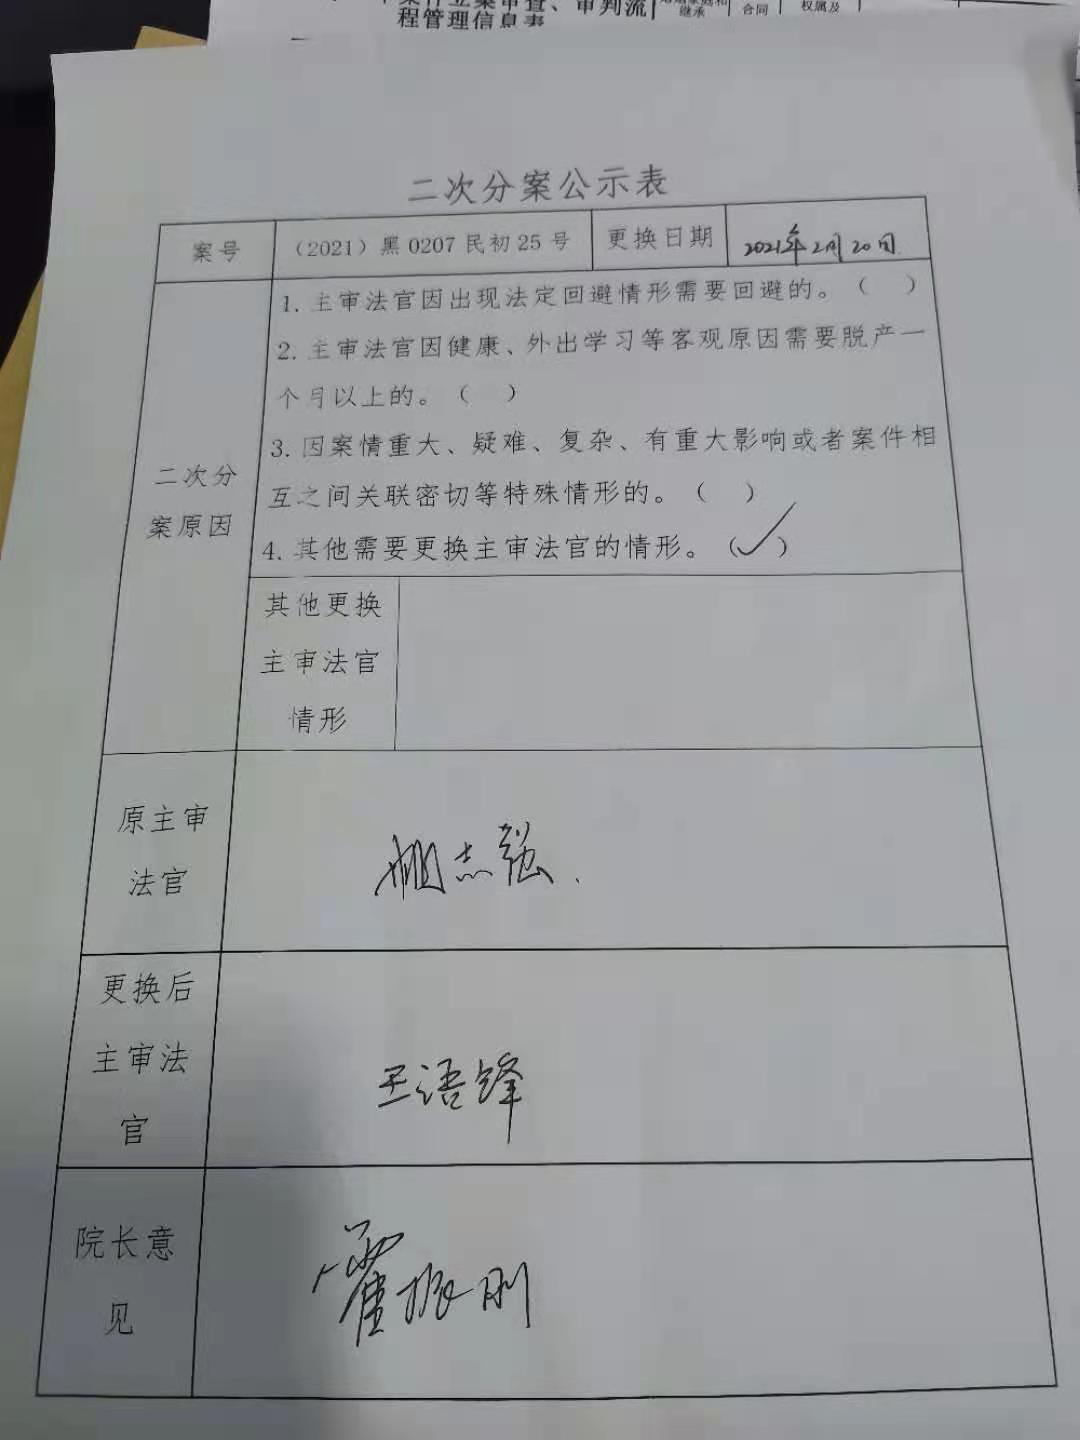 程管理信息表
继承
合同
权属及
二次分案公示表
案号
（2021）黑 0207 民初 25 号
更换日期
2021年2月20日
1. 主审法官因出现法定回避情形需要回避的。（ ）
2. 主审法官因健康、外出学习等客观原因需要脱产一
个月以上的。（ ）
3. 因案情重大、疑难、复杂、有重大影响或者案件相
互之间关联密切等特殊情形的。（ ）
4. 其他需要更换主审法官的情形。（✓）
二次分
案原因
其他更换
主审法官
情形
原主审
法官
志强
更换后
主审法
官
王语锋
院长意
见
霍振刚